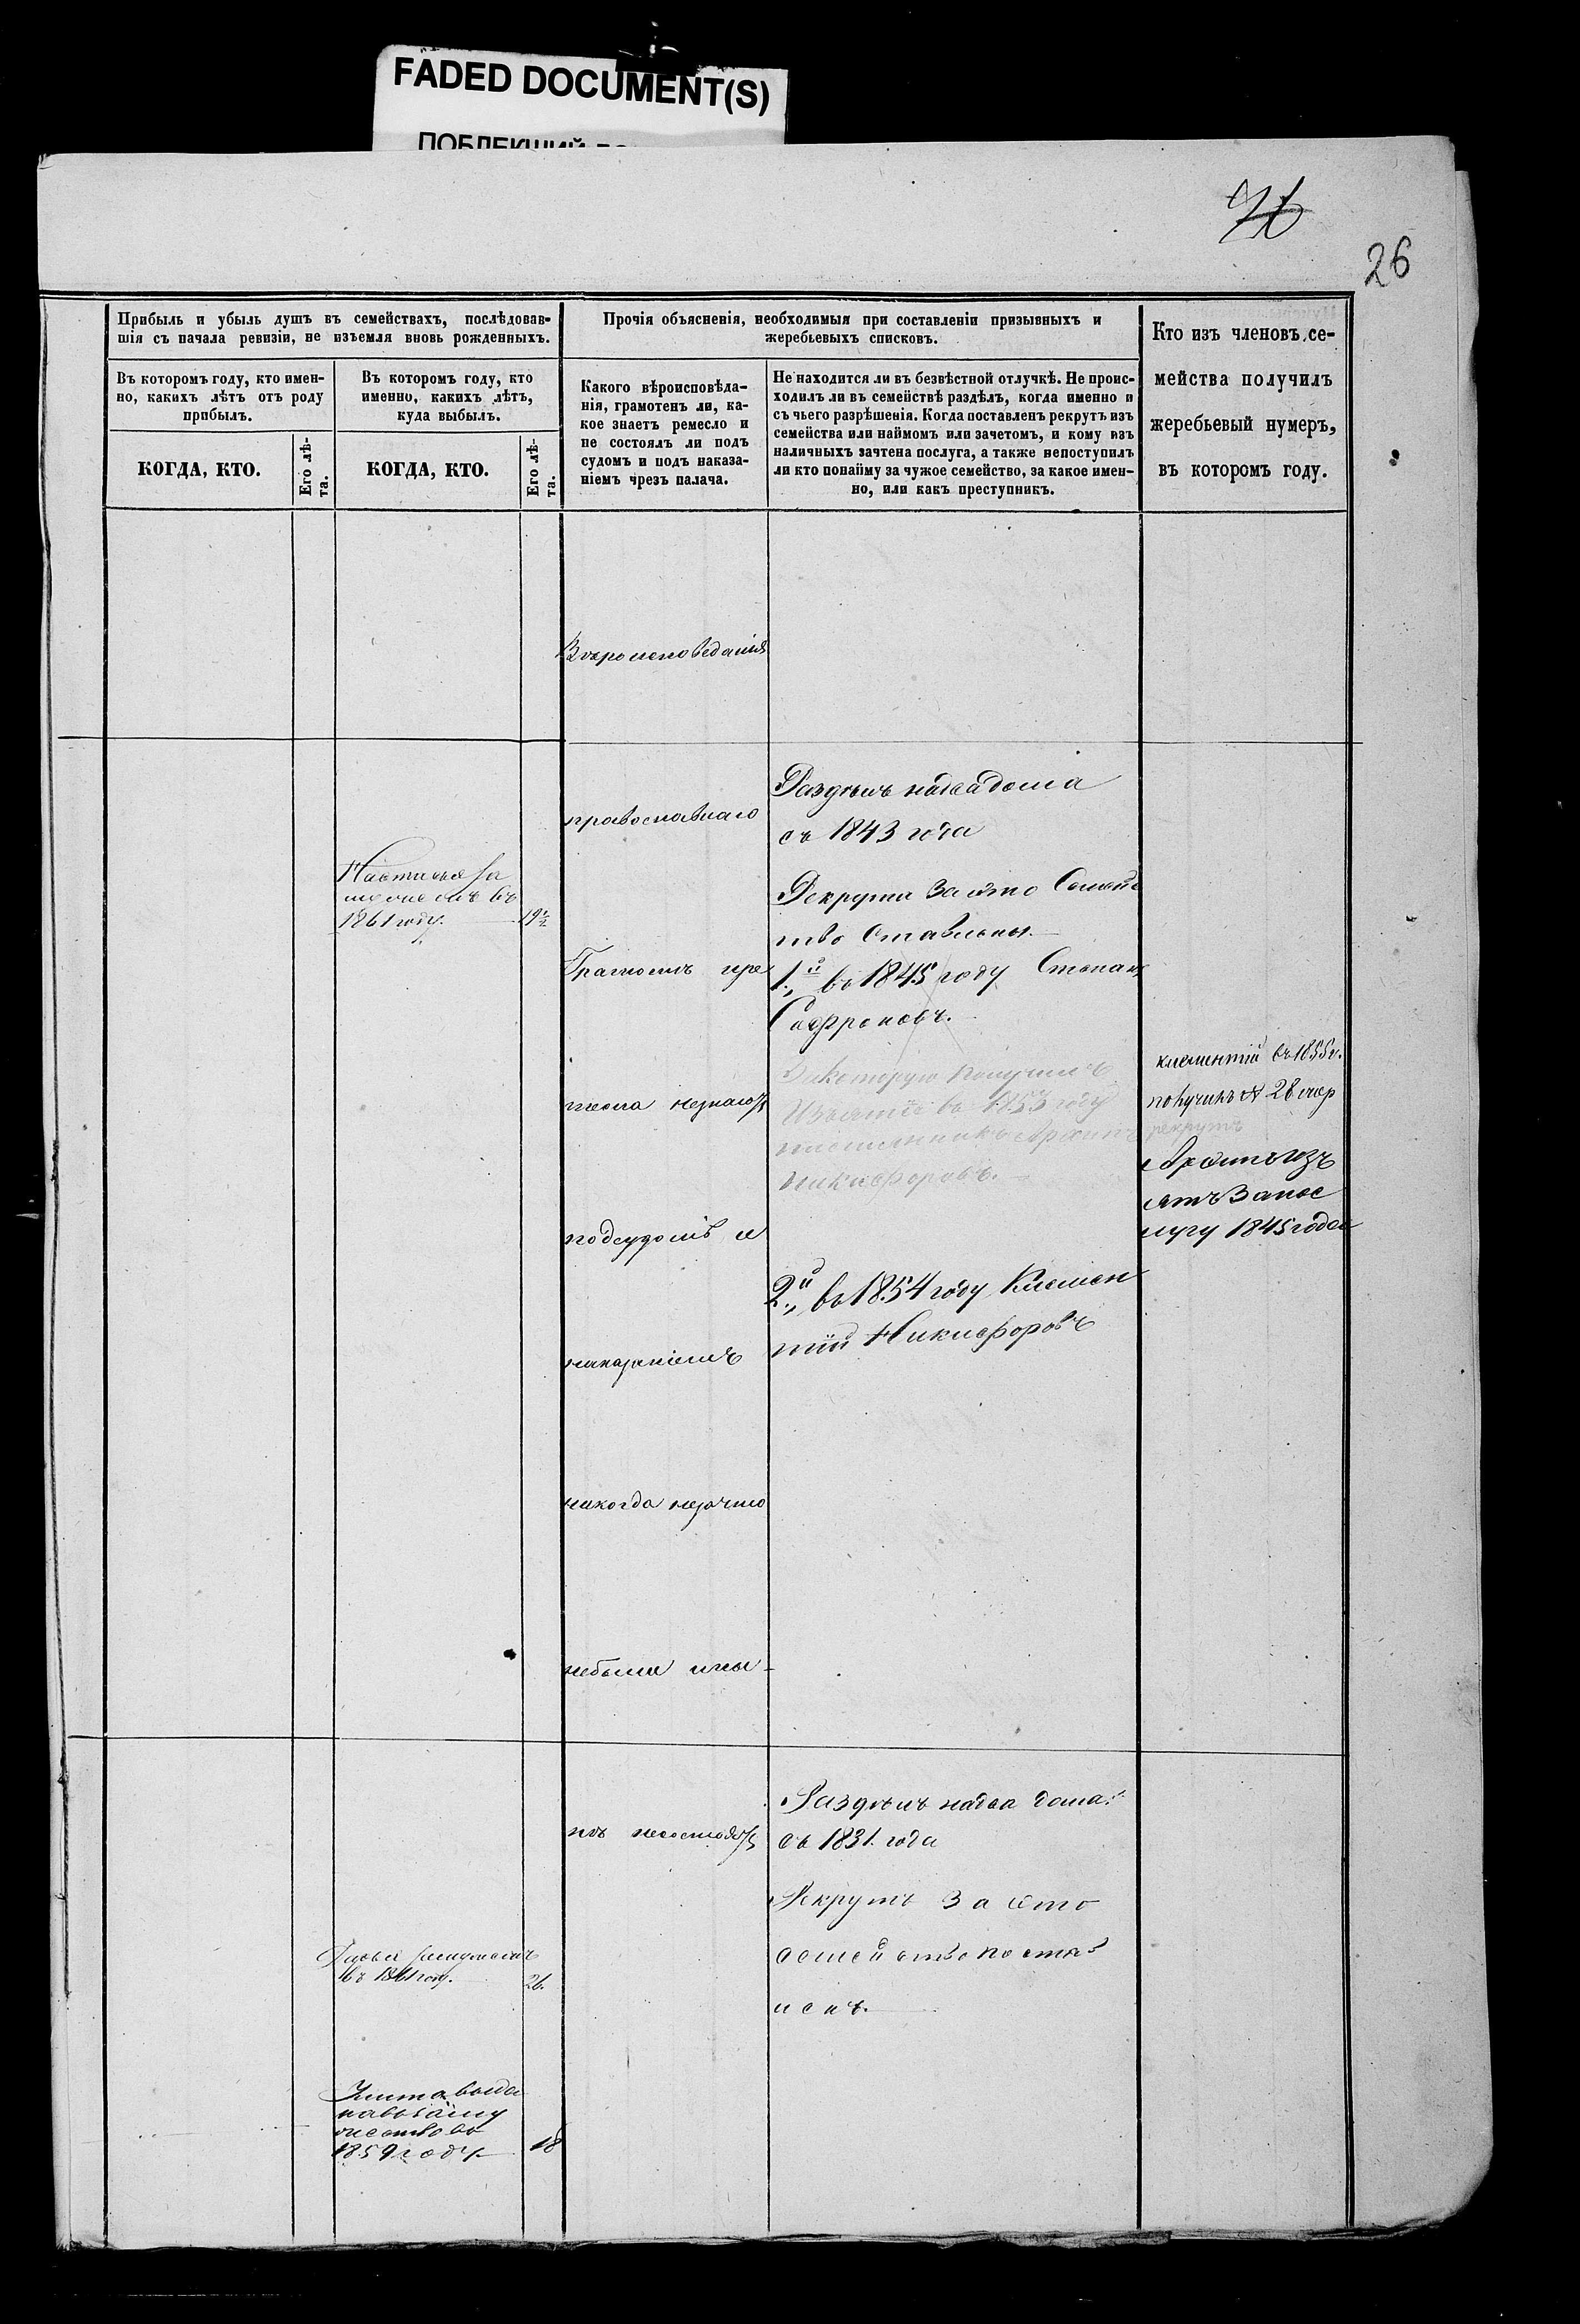 FADED DOCUMENT(S)
26
Прибыль и убыль душъ въ семействахъ, послѣдовав-
шія съ начала ревизіи, не изъемля вновь рожденныхъ.
Прочія объясненія, необходимыя при составленіи призывныхъ и
жеребьевыхъ списковъ.
Кто изъ членовъ се-
мейства получилъ
жеребьевый нумеръ,
въ которомъ году.
Въ которомъ году, кто имен-
но, какихъ лѣтъ отъ роду
прибылъ.
Въ которомъ году, кто
именно, какихъ лѣтъ,
куда выбылъ.
Какого вѣроисповѣда-
нія, грамотенъ ли, ка-
кое знаетъ ремесло и
не состоялъ ли подъ
судомъ и подъ наказа-
ніемъ чрезъ палача.
Не находится ли въ безвѣстной отлучкѣ. Не проис-
ходилъ ли въ семействѣ раздѣлъ, когда именно и
съ чьего разрѣшенія. Когда поставленъ рекрутъ изъ
семейства или наймомъ или зачетомъ, и кому изъ
наличныхъ зачтена послуга, а также непоступилъ
ли кто понайму за чужое семейство, за какое имен-
но, или какъ преступникъ.
КОГДА, КТО.
Его лѣ-
та.
КОГДА, КТО.
Его лѣ-
та.
Вѣроисповеданія
православнаго
Раздѣлъ на два дома
съ 1843 года
въ
1861 году.
Рекруты за это Семейс
тво Ставлены.
1й въ 1845 году Степанъ
Сафроновъ.
За которую получилъ
Изъятіе въ 1855 году
племянникъ Архипъ
Никифоровъ.
2й въ 1854 году Клемен
тій Никифоровъ
клементій въ 1855 г.
получилъ № 28
рекрутъ
Архипъ изъ
ятъ за пос
лугу 1845 года
подсудомъ и
наказаніемъ
никогда
небыли
Раздѣлъ на два дома
съ 1831 года
Рекрутъ за это
семейство постав
ленъ.
Дарья замужемъ
въ 1861 году.
26.
1859 году
18